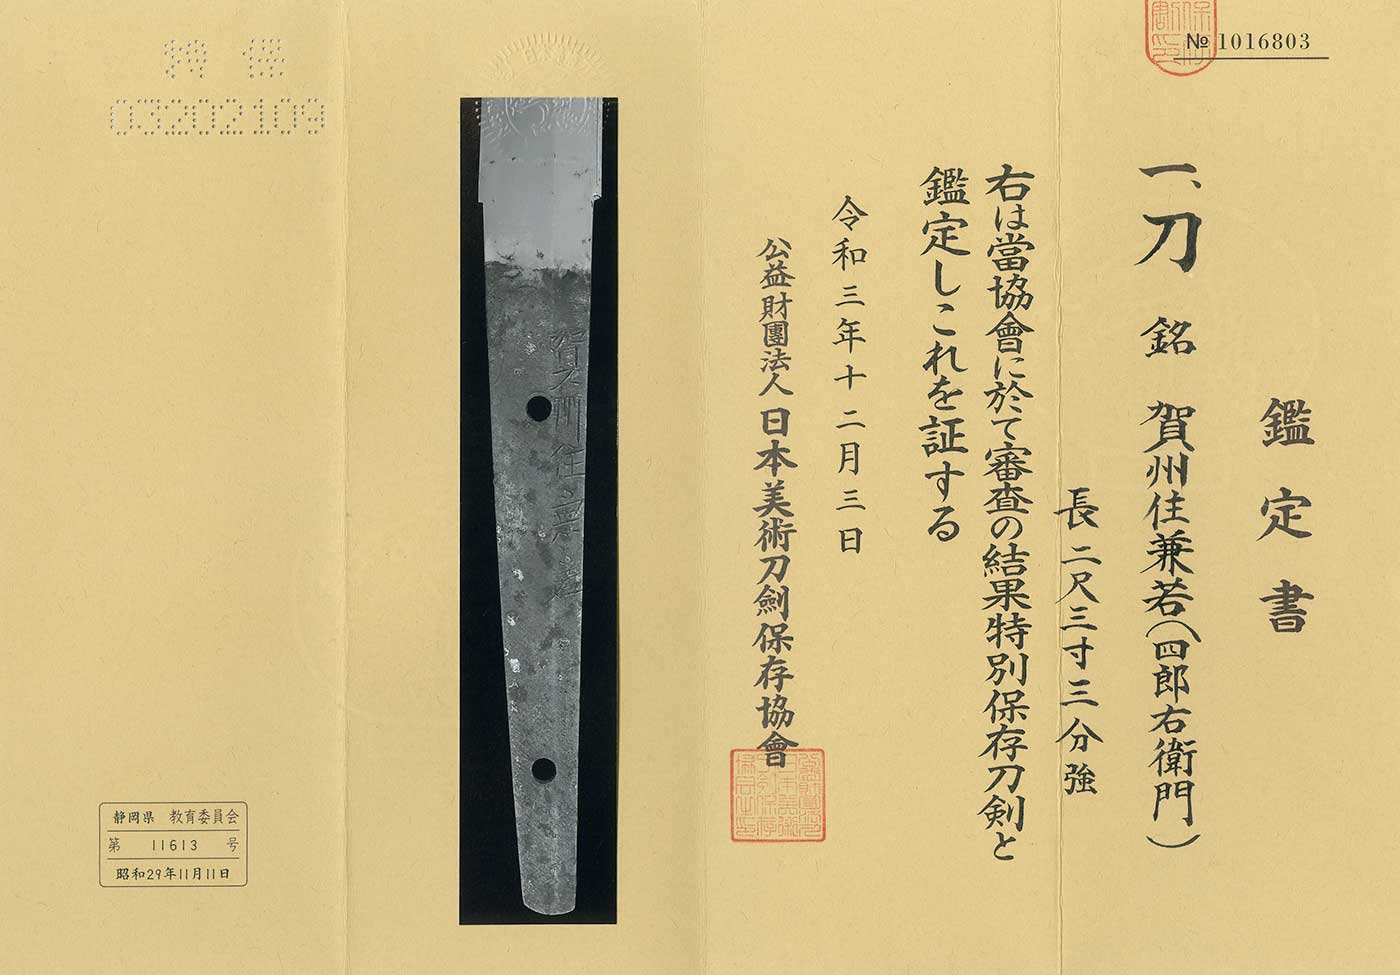 № 1016803
鑑定書
一、刀 銘 賀州住兼若(四郎右衛門)
長二尺三寸三分強
右は當協會に於て審査の結果特別保存刀剣と
鑑定しこれを証する
令和三年十二月三日
公益財團法人日本美術刀劍保存協會
賀州住兼
特保
03202109
静岡県 教育委員会
第 11613 号
昭和29年11月11日